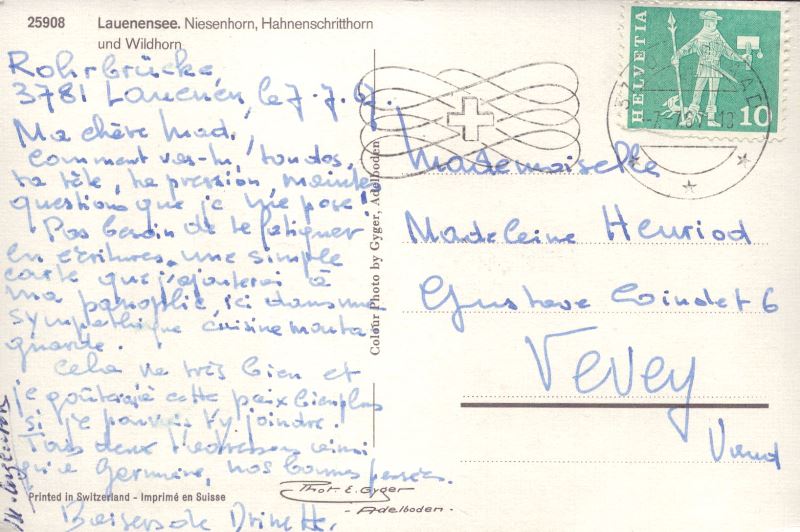 25908 Lauenensee. Niesenhorn, Hahnenschritthorn
und Wildhorn
Rohrbrücke,
3781 Lauenen, le 7.7.67.
Ma chère Mad,
Comment vas-tu, ton dos,
ta tête, ta pression,
questions que je me pose!
Pas besoin de te fatiguer
en écritures, une simple
carte que j'ajouterai à
ma panoplie, ici dans ma
sympathique cuisine monta-
gnarde.
Cela va très bien et
je goûterais cette paix bien plus
si je pouvais t'y joindre.
Tous deux ainsi
Germaine, nos bonnes pensées.
Baisers de
Colour Photo by Gyger, Adelboden
HELVETIA
10
Mademoiselle
Madeleine Henriod
Gustave Coindet 6
Vevey
Vaud
Printed in Switzerland - Imprimé en Suisse
Phot. E. Gyger
- Adelboden -